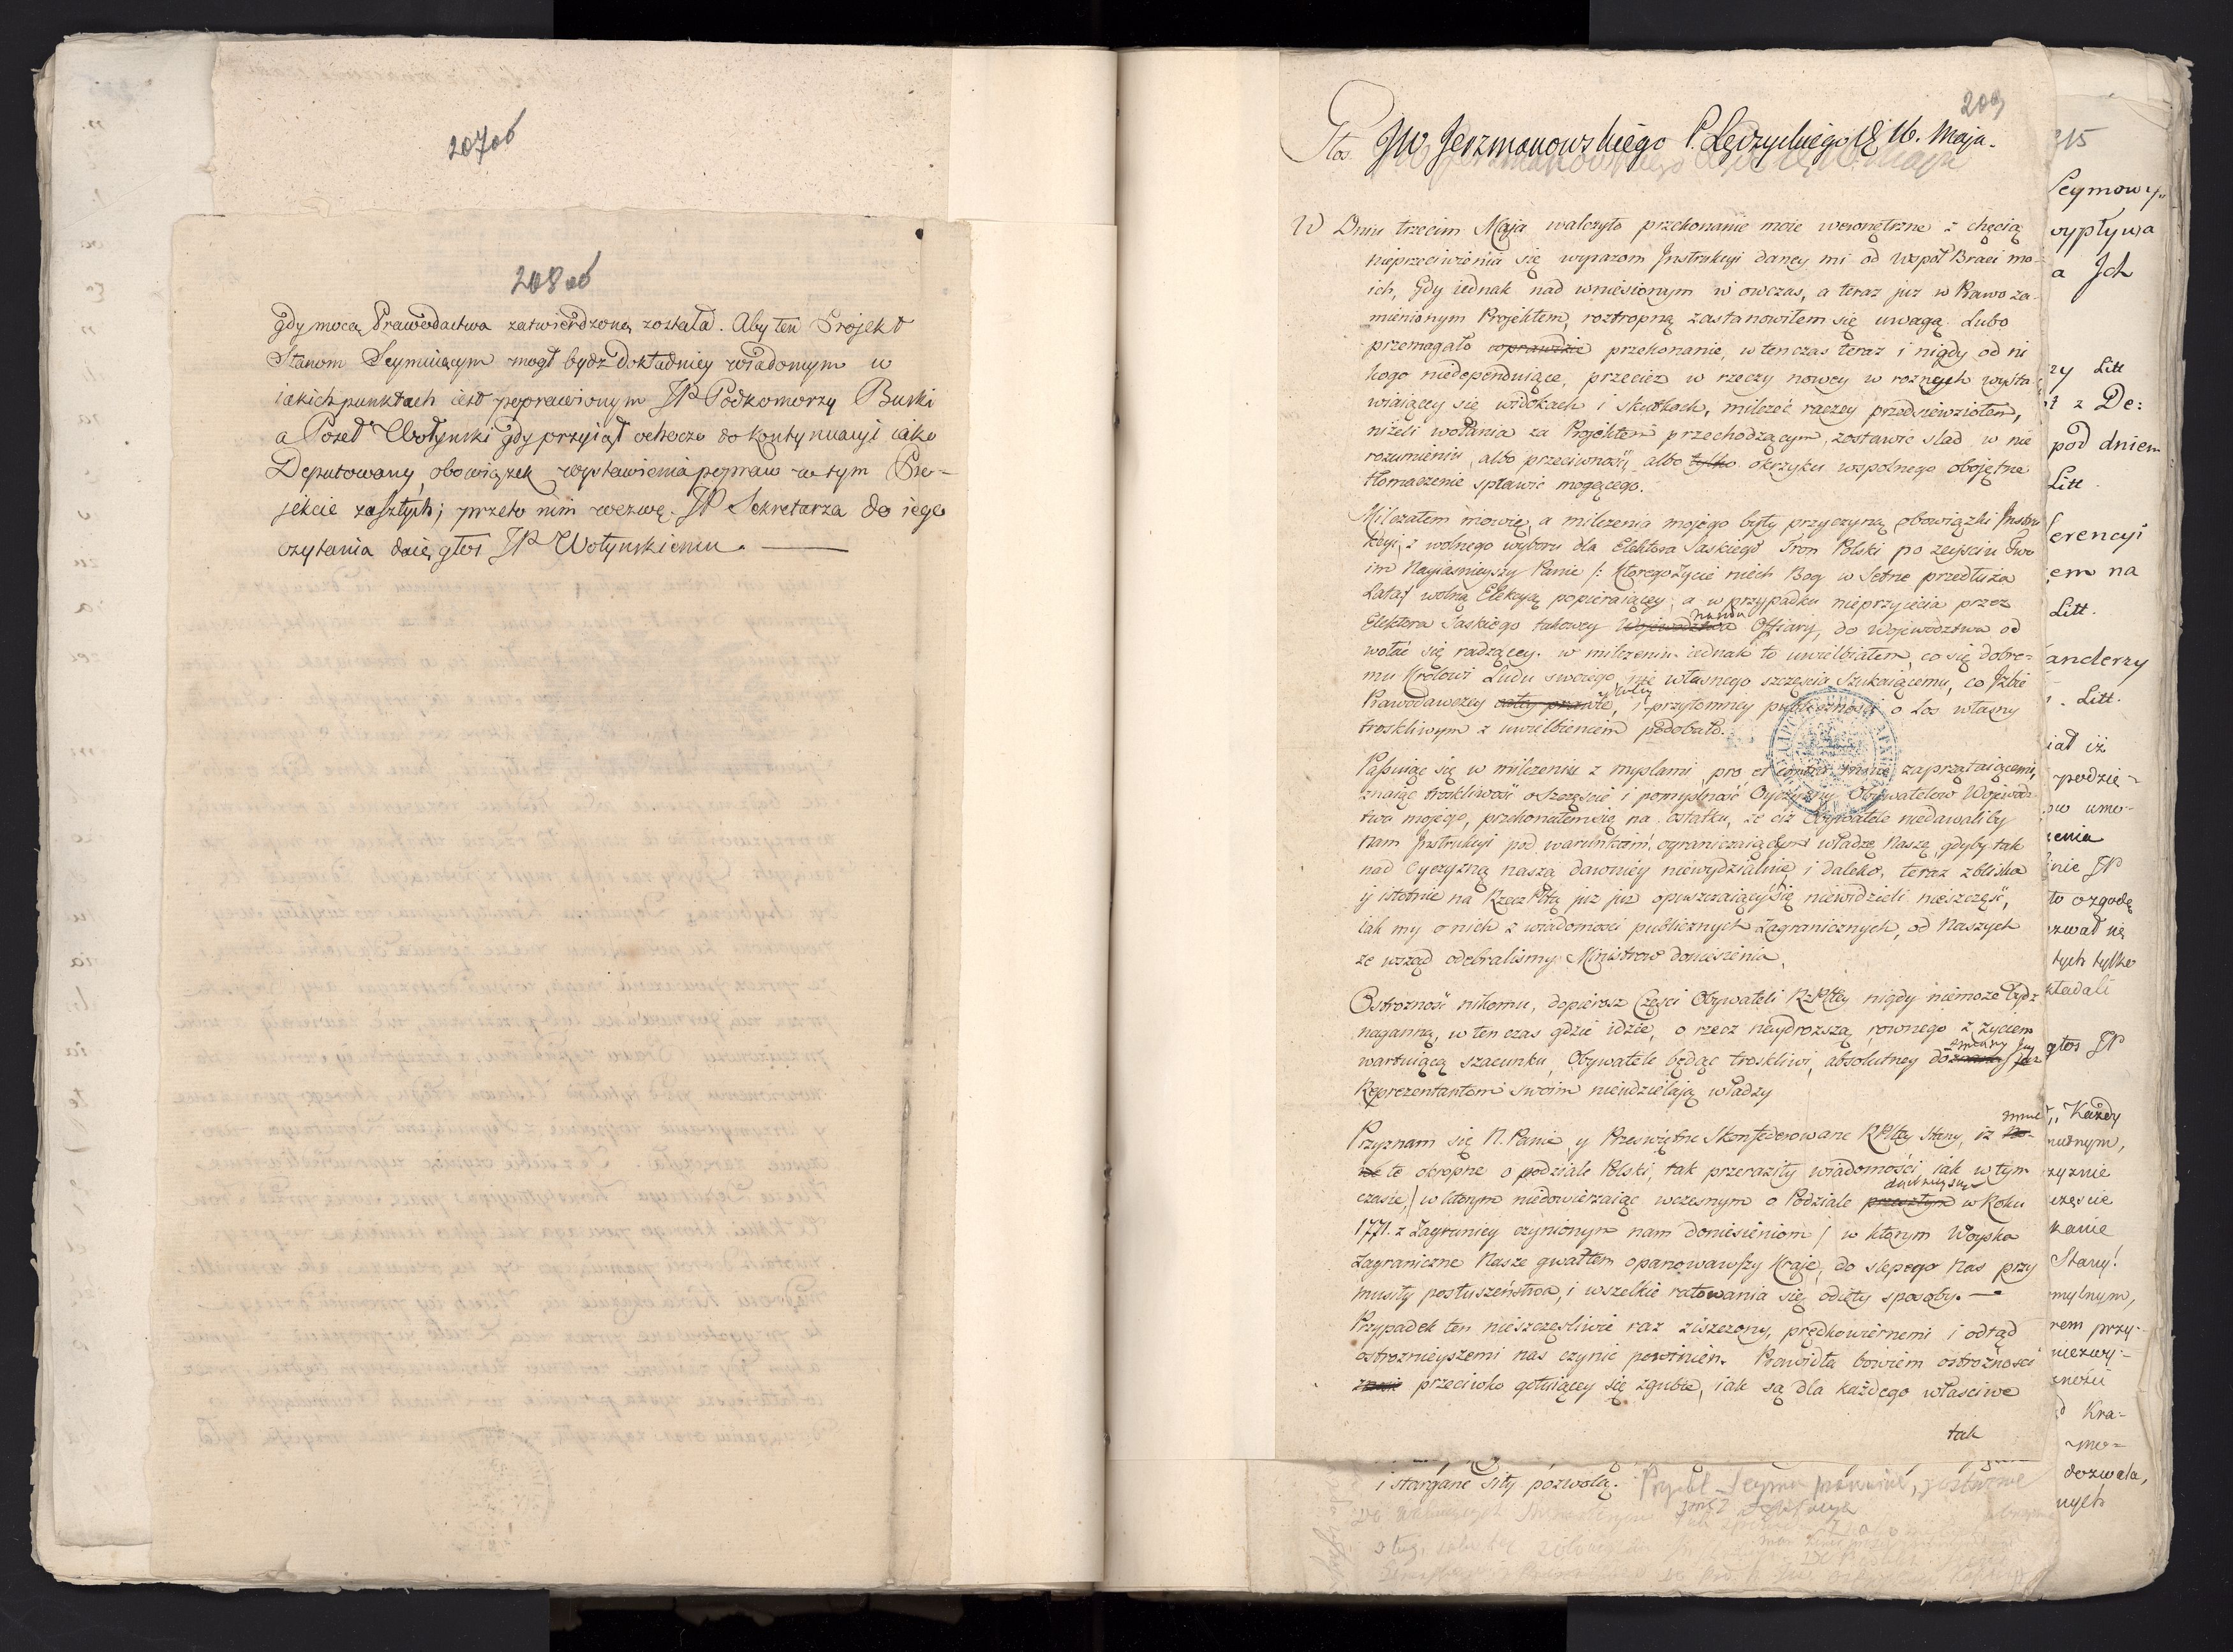 207об
208об
gdy mocą Prawodastwa zatwierdzoną została. Aby ten Projekt
Stanom Seymuiącym mogł bydz dokładniey wiadomym w
iakich punktach iest poprawionym JP Podkomorzy Buski
a Poseł Wołynski gdy przyiął ochoczo do kontynuacyi iako
Deputowany obowiązek wystawienia popraw w tym Pro=
jekcie zaszłych; przeto nim wezwę JP Sekretarza do iego
czytania daię głos JP Wołynskiemu.
209
Głos JW Jerzmanowskiego P. Łęczyckiego D. 16. Maja.
W Dniu trzecim Maja walczyło przekonanie moie wewnętrzne z chęcią
nieprzeciwienia się wyrazom Instrukcyi daney mi od Wspoł Braci mo=
ich, Gdy iednak nad wniesionym w owczas, a teraz juz w Prawo za=
mienionym Projektem, roztropną zastanowiłem się uwagą. Lubo
przemagało wprawdzie przekonanie, w ten czas teraz i nigdy od ni
kogo niedependuiące, przecież w rzeczy nowey w roznych wysta
wiaiącey się widokach i skutkach, milczeć raczey przedsiewziołem,
niżeli wołania za Projektem przechodzącym, zostawić slad w nie
rozumieniu, albo przeciwność, albo tylko okrzyku wspolnego obojętne
tłomaczenie sprawić mogącego.
Milczałem mowię, a milczenia mojego były przyczyną obowiązki Instru
kcyi, z wolnego wyboru dla Elektora Saskiego Tron Polski po zejsciu Two
im Nayiasnieyszy Panie /: ktorego życie niech Bog w Setne przedłuża
Lata :/ wolną Elekcyą popieraiącey; a w przypadku nieprzyięcia przez
Elektora Saskiego takowey Wojewodztwa Narodu Offiary, do Wojewodztwa od
wołać się radzącey. w milczeniu iednak to uwielbiałem, co się dobre=
mu Krolowi Ludu swoiego nie własnego szczęscia Szukaiącemu, co Izbie
Prawodawczey całey prawie, i przytomney publicznosci o Los własny
troskliwym z uwielbieniem podobało.
Passuiąc się w milczeniu z myslami pro et contra mnie zaprzątaiącemi,
znaiąc troskliwość o szczęscie i pomyslność Oyczyzny Obywatelow Wojewodz
twa mojego, przekonałem się na ostatku, że ciż Obywatele niedawaliby
nam Instrukcyi pod warunkami, ograniczaiącemi władzę Naszą, gdyby tak
nad Oyczyzną naszą dawniey niewydzialnie, i daleko, teraz zbliska
y istotnie na Rzecz Pltą już już opuszczaiących się niewidzieli nieszczęść,
iak my o nich z wiadomosci publicznych Zagranicznych, od Naszych
ze wsząd odebralismy Ministrow doniesienia.
Ostrozność nikomu, dopierosz Częsci Obywateli RzPltey nigdy niemoze bydz
naganną, w ten czas gdzie idzie, o rzecz naydroższą, rownego z życiem
wartuiącą szacunku, Obywatele będąc troskliwi, absolutney do
Reprezentantom swoim nieudzielaią władzy
Przyznam się N. Panie, y Preswiętne Skonfederowane RPltey Stany, iż mnie
te okropne o podziale Polski, tak przeraziły wiadomości, iak w tym
czasie, / w ktorym niedowierzaiąc wczesnym o Podziale przeszłym w Roku
1771. z Zagranicy czynionym nam doniesieniom / w ktorym Woyska
Zagraniczne Nasze gwałtem opanowawszy Kraje, do slepego Nas przy
musiły posłuszeństwa, i wszelkie ratowania się odięły sposoby.
Przypadek ten nieszczęsliwie raz ziszczony, prędkowiernemi i odtąd
ostroznieyszemi nas czynic powinien. Prawidła bowiem ostrożnosci
przeciwko gotuiącey się zgubie, iak są dla każdego własciwe
tak
i stargane siły pozwolą.
215
Seymowy
wypływa
a Ich
Litt
z De:
pod dniem
Litt.
ferencyi
em na
Litt.
anderzy
Litt.
iał iż
podzie=
ow umo=
zenia
nie JP
to ozgodę
ezwał się
tych tylko
kładali
głos JP
Każdy
zyznie
częscie
kanie
Stany!
mylnym,
rem przy=
niezwy=
zności
Kra=
mo=
dozwala,
nych